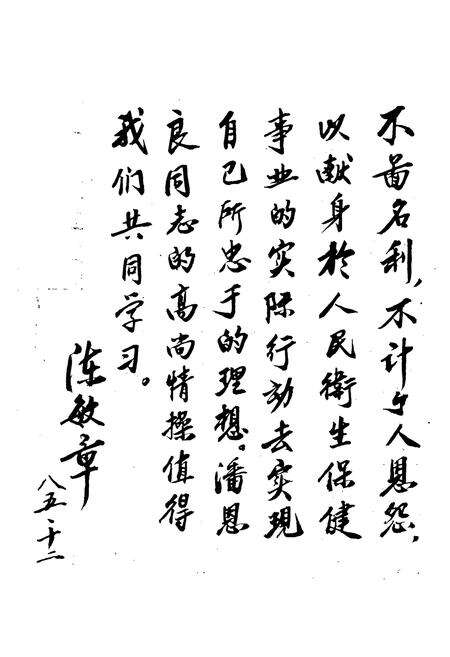 不图名利，不计个人恩怨，
以献身於人民衛生保健
事业的实际行动去实现
自己所忠于的理想。潘恩
良同志的高尚情操值得
我们共同学习。
陈敏章
八五·十二